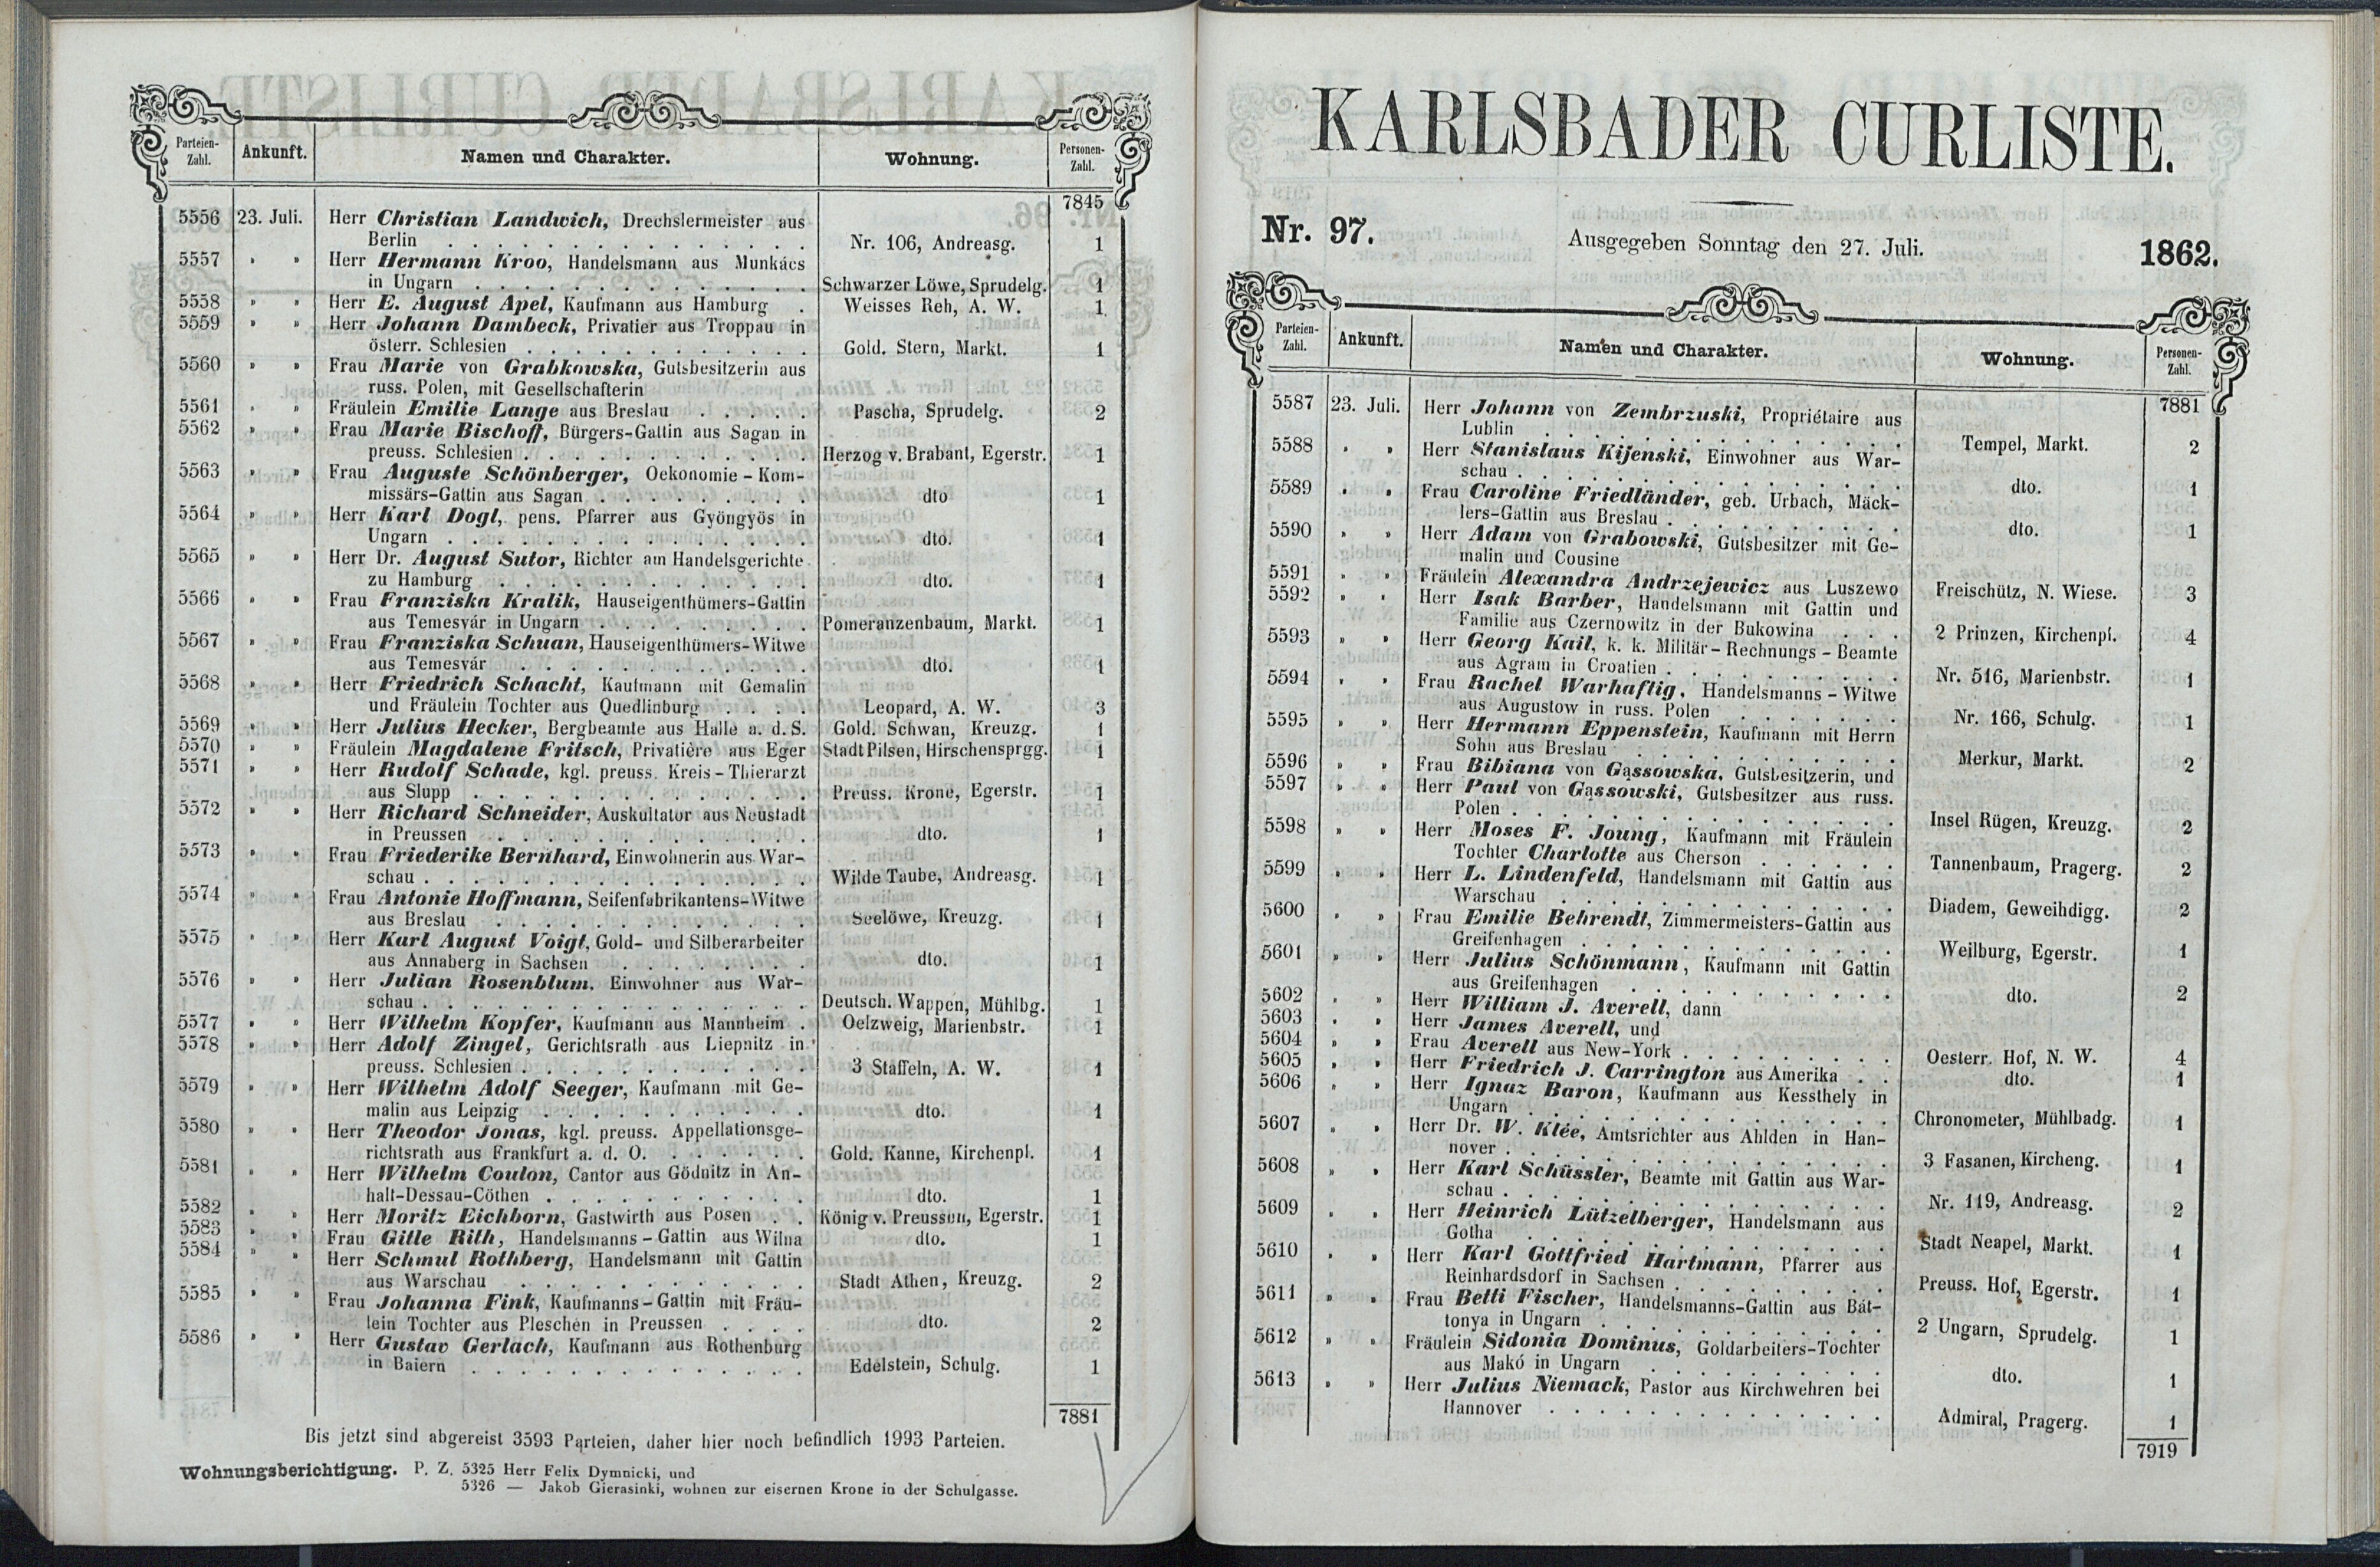 Parteien-Zahl. Ankunft. Namen und Charakter. Wohnung. Personen-Zahl.
7845
5556 23. Juli. Herr Christian Landwich, Drechslermeister aus
Berlin . . . Nr. 106, Andreasg. 1
5557 » » Herr Hermann Kroo, Handelsmann aus Munkács
in Ungarn . . . Schwarzer Löwe, Sprudelg. 1
5558 » » Herr E. August Apel, Kaufmann aus Hamburg . Weisses Reh, A. W. 1
5559 » » Herr Johann Dambeck, Privatier aus Troppau in
österr. Schlesien . . . Gold. Stern, Markt. 1
5560 » » Frau Marie von Grabkowska, Gutsbesitzerin aus
russ. Polen, mit Gesellschafterin
5561 » » Fräulein Emilie Lange aus Breslau . . . Pascha, Sprudelg. 2
5562 » » Frau Marie Bischoff, Bürgers-Gattin aus Sagan in
preuss. Schlesien . . . Herzog v. Brabant, Egerstr. 1
5563 » » Frau Auguste Schönberger, Oekonomie-Kom-
missärs-Gattin aus Sagan . . . dto 1
5564 » » Herr Karl Dogl, pens. Pfarrer aus Gyöngyös in
Ungarn . . . dto. 1
5565 » » Herr Dr. August Sutor, Richter am Handelsgerichte
zu Hamburg . . . dto. 1
5566 » » Frau Franziska Kralik, Hauseigenthümers-Gattin
aus Temesvár in Ungarn . . . Pomeranzenbaum, Markt. 1
5567 » » Frau Franziska Schuan, Hauseigenthümers-Witwe
aus Temesvár . . . dto. 1
5568 » » Herr Friedrich Schacht, Kaufmann mit Gemalin
und Fräulein Tochter aus Quedlinburg . . . Leopard, A. W. 3
5569 » » Herr Julius Hecker, Bergbeamte aus Halle a. d. S. Gold. Schwan, Kreuzg. 1
5570 » » Fräulein Magdalene Fritsch, Privatière aus Eger Stadt Pilsen, Hirschensprgg. 1
5571 » » Herr Rudolf Schade, kgl. preuss. Kreis-Thierarzt
aus Slupp . . . Preuss. Krone, Egerstr. 1
5572 » » Herr Richard Schneider, Auskultator aus Neustadt
in Preussen . . . dto. 1
5573 » » Frau Friederike Bernhard, Einwohnerin aus War-
schau . . . Wilde Taube, Andreasg. 1
5574 » » Frau Antonie Hoffmann, Seifenfabrikantens-Witwe
aus Breslau . . . Seelöwe, Kreuzg. 1
5575 » » Herr Karl August Voigt, Gold- und Silberarbeiter
aus Annaberg in Sachsen . . . dto. 1
5576 » » Herr Julian Rosenblum, Einwohner aus War-
schau . . . Deutsch. Wappen, Mühlbg. 1
5577 » » Herr Wilhelm Kopfer, Kaufmann aus Mannheim . Oelzweig, Marienbstr. 1
5578 » » Herr Adolf Zingel, Gerichtsrath aus Liepnitz in
preuss. Schlesien . . . 3 Staffeln, A. W. 1
5579 » » Herr Wilhelm Adolf Seeger, Kaufmann mit Ge-
malin aus Leipzig . . . dto. 1
5580 » » Herr Theodor Jonas, kgl. preuss. Appellationsge-
richtsrath aus Frankfurt a. d. O. . . . Gold. Kanne, Kirchenpl. 1
5581 » » Herr Wilhelm Coulon, Cantor aus Gödnitz in An-
halt-Dessau-Cöthen . . . dto. 1
5582 » » Herr Moritz Eichborn, Gastwirth aus Posen . . König v. Preussen, Egerstr. 1
5583 » » Frau Gitle Rith, Handelsmanns-Gattin aus Wilna dto. 1
5584 » » Herr Schmul Rothberg, Handelsmann mit Gattin
aus Warschau . . . Stadt Athen, Kreuzg. 2
5585 » » Frau Johanna Fink, Kaufmanns-Gattin mit Fräu-
lein Tochter aus Pleschen in Preussen . . . dto. 2
5586 » » Herr Gustav Gerlach, Kaufmann aus Rothenburg
in Baiern . . . Edelstein, Schulg. 1
7881
Bis jetzt sind abgereist 3593 Parteien, daher hier noch befindlich 1993 Parteien.
Wohnungsberichtigung. P. Z. 5325 Herr Felix Dymnicki, und
5326 — Jakob Gierasinki, wohnen zur eisernen Krone in der Schulgasse.
KARLSBADER CURLISTE.
Nr. 97. Ausgegeben Sonntag den 27. Juli. 1862.
Parteien-Zahl. Ankunft. Namen und Charakter. Wohnung. Personen-Zahl.
7881
5587 23. Juli. Herr Johann von Zembrzuski, Propriétaire aus
Lublin . . . Tempel, Markt. 2
5588 » » Herr Stanislaus Kijenski, Einwohner aus War-
schau . . . dto. 1
5589 » » Frau Caroline Friedländer, geb. Urbach, Mäck-
lers-Gattin aus Breslau . . . dto. 1
5590 » » Herr Adam von Grabowski, Gutsbesitzer mit Ge-
malin und Cousine
5591 » » Fräulein Alexandra Andrzejewicz aus Luszewo Freischütz, N. Wiese. 3
5592 » » Herr Isak Barber, Handelsmann mit Gattin und
Familie aus Czernowitz in der Bukowina . . . 2 Prinzen, Kirchenpl. 4
5593 » » Herr Georg Kail, k. k. Militär-Rechnungs-Beamte
aus Agram in Croatien . . . Nr. 516, Marienbstr. 1
5594 » » Frau Rachel Warhaftig, Handelsmanns-Witwe
aus Augustow in russ. Polen . . . Nr. 166, Schulg. 1
5595 » » Herr Hermann Eppenstein, Kaufmann mit Herrn
Sohn aus Breslau . . . Merkur, Markt. 2
5596 » » Frau Bibiana von Gąssowska, Gutsbesitzerin, und
5597 » » Herr Paul von Gąssowski, Gutsbesitzer aus russ.
Polen . . . Insel Rügen, Kreuzg. 2
5598 » » Herr Moses F. Joung, Kaufmann mit Fräulein
Tochter Charlotte aus Cherson . . . Tannenbaum, Pragerg. 2
5599 » » Herr L. Lindenfeld, Handelsmann mit Gattin aus
Warschau . . . Diadem, Geweihdigg. 2
5600 » » Frau Emilie Behrendt, Zimmermeisters-Gattin aus
Greifenhagen . . . Weilburg, Egerstr. 1
5601 » » Herr Julius Schönmann, Kaufmann mit Gattin
aus Greifenhagen . . . dto. 2
5602 » » Herr William J. Averell, dann
5603 » » Herr James Averell, und
5604 » » Frau Averell aus New-York . . . Oesterr. Hof, N. W. 4
5605 » » Herr Friedrich J. Carrington aus Amerika . . dto. 1
5606 » » Herr Ignaz Baron, Kaufmann aus Kessthely in
Ungarn . . . Chronometer, Mühlbadg. 1
5607 » » Herr Dr. W. Klée, Amtsrichter aus Ahlden in Han-
nover . . . 3 Fasanen, Kircheng. 1
5608 » » Herr Karl Schüssler, Beamte mit Gattin aus War-
schau . . . Nr. 119, Andreasg. 2
5609 » » Herr Heinrich Lützelberger, Handelsmann aus
Gotha . . . Stadt Neapel, Markt. 1
5610 » » Herr Karl Gottfried Hartmann, Pfarrer aus
Reinhardsdorf in Sachsen . . . Preuss. Hof, Egerstr. 1
5611 » » Frau Betti Fischer, Handelsmanns-Gattin aus Bát-
tonya in Ungarn . . . 2 Ungarn, Sprudelg. 1
5612 » » Fräulein Sidonia Dominus, Goldarbeiters-Tochter
aus Makó in Ungarn . . . dto. 1
5613 » » Herr Julius Niemack, Pastor aus Kirchwehren bei
Hannover . . . Admiral, Pragerg. 1
7919